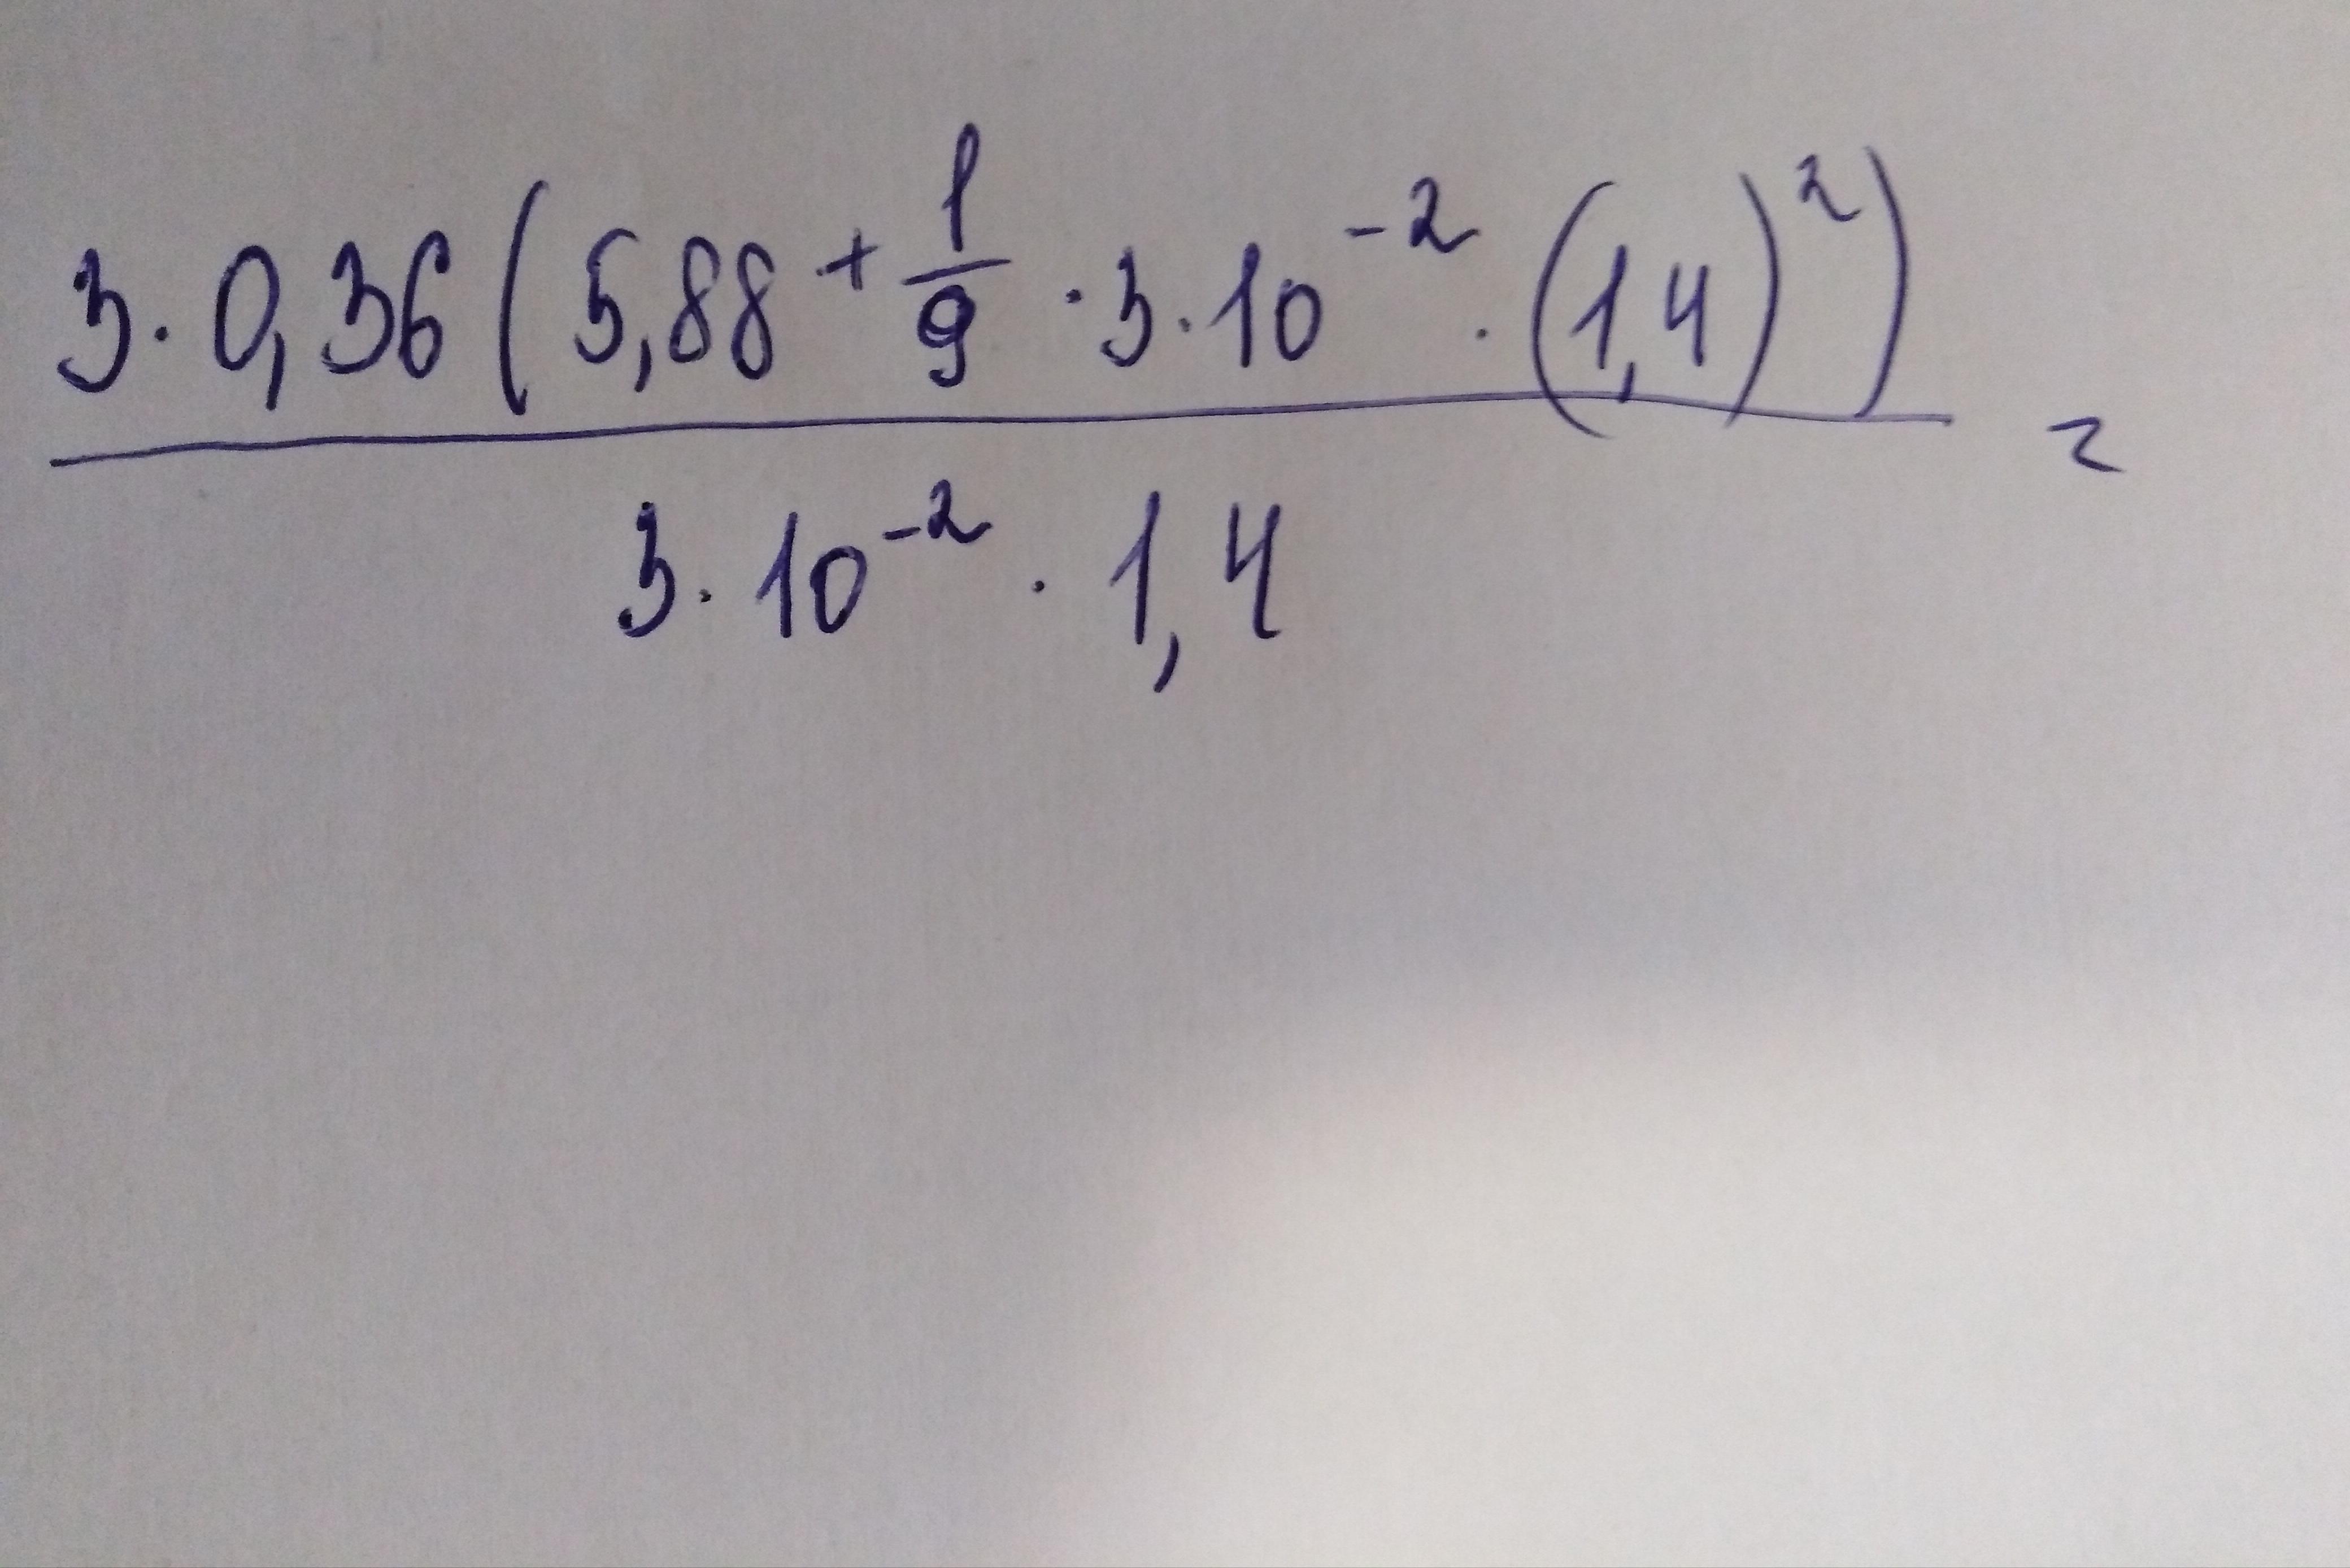 3 · 0,36 ( 5,88 + 1/9 · 3 · 10^-2 · (1,4)^2 ) =
3 · 10^-2 · 1,4